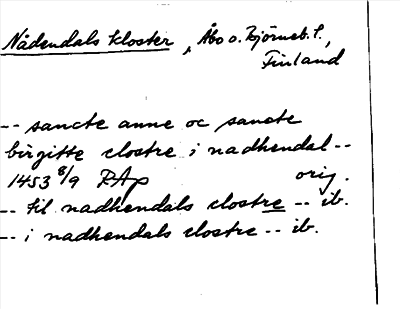 Nådendals kloster, Åbo o. Björneb. l.,
Finland
-- sancte anne oc sancte
birgitte clostre i nadhendal --
1453 8/9 RAp orig.
-- til nadhendals clostre -- ib.
-- i nadhendals clostre -- ib.